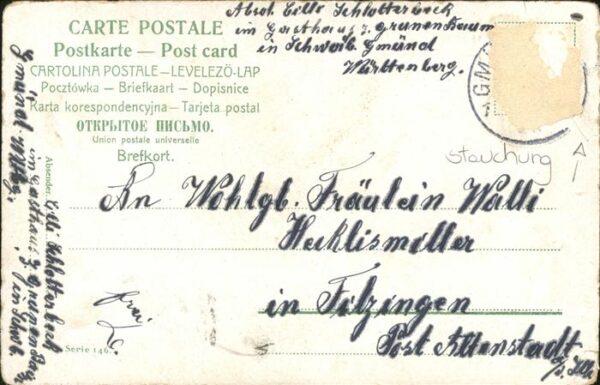 Absd. Lille Schlotterbeck
im Gasthaus z. grünen Baum
in Schwäb. Gmünd
Württenberg.
CARTE POSTALE
Postkarte — Post card
CARTOLINA POSTALE — LEVELEZŐ-LAP
Pocztówka — Briefkaart — Dopisnice
Karta korespondencyjna — Tarjeta postal
ОТКРЫТОЕ ПИСЬМО.
Union postale universelle
Brefkort.
GM
Stauchung
An Wohlgb. Fräulein Walli
Hecklismiller
in Filzingen
Post Altenstadt
a/d. Ill.
frei
Absender: Lilli Schlotterbeck
im Gasthaus z. Grünen Baum
in Schwb.
Gmünd
Serie 146